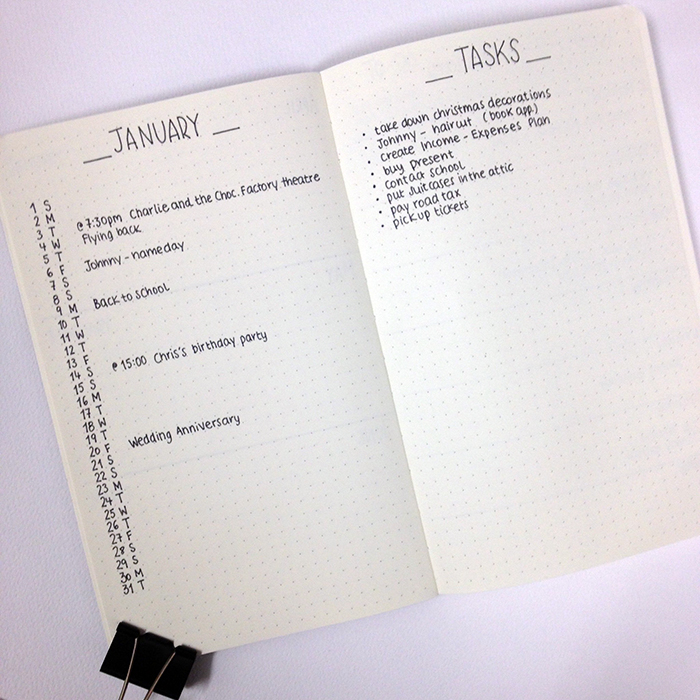 JANUARY
1 S
2 M
3 T @ 7:30pm Charlie and the Choc. Factory theatre
4 W Flying back
5 T
6 F Johnny - nameday
7 S
8 S
9 M Back to school
10 T
11 W
12 T
13 F
14 S @ 15:00 Chris's birthday party
15 S
16 M
17 T
18 W
19 T
20 F Wedding Anniversary
21 S
22 S
23 M
24 T
25 W
26 T
27 F
28 S
29 S
30 M
31 T
TASKS
• take down christmas decorations
• Johnny - haircut (book app.)
• create Income - Expenses Plan
• buy present
• contact school
• put suitcases in the attic
• pay road tax
• pick up tickets